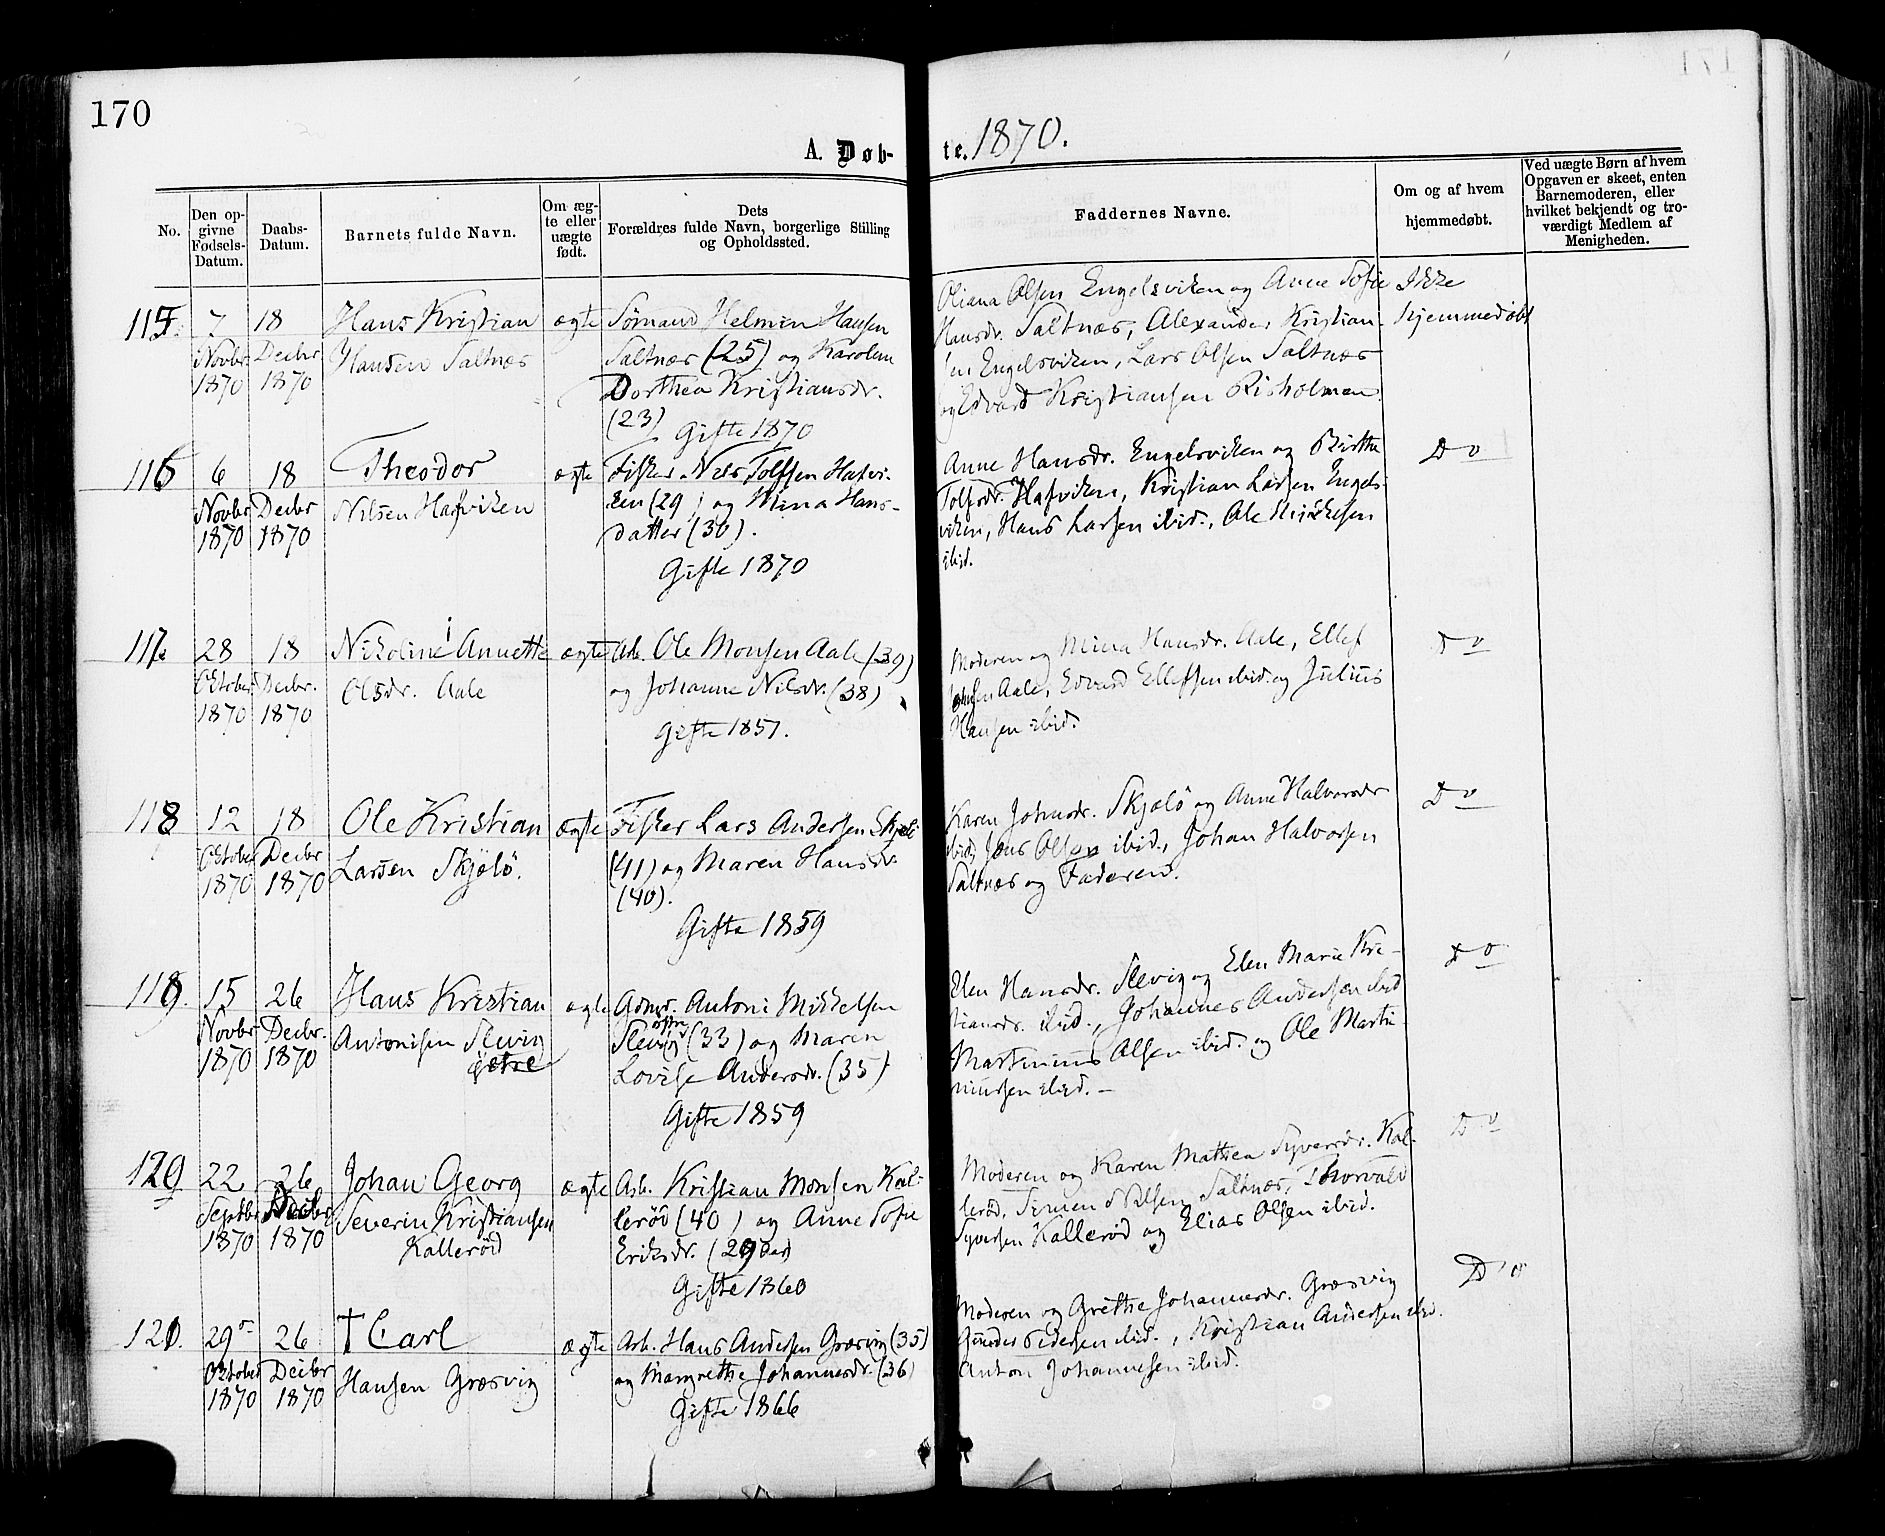 170
A. Døb-
te. 1870.
No.
Den op-
givne
Fødsels-
Datum.
Daabs-
Datum.
Barnets fulde Navn.
Om æg-
te eller
uægte
født.
Dets
Forældres fulde Navn, borgerlige Stilling
og Opholdssted.
Faddernes Navne.
Om og af hvem
hjemmedøbt.
Ved uægte Børn af hvem
Opgaven er skeet, enten
Barnemoderen, eller
hvilket bekjendt og tro-
værdigt Medlem af
Menigheden.
115.
7
Novbr
1870
18
Decbr
1870
Hans Kristian
Hansen Saltnæs
ægte
Sømand Helmin Hansen
Saltnæs (25) og Karoline
Dorthea Kristiansdr.
(23)
Gifte 1870
Oliana Olsen Engelsviken og Anne Sofie
Hansdr. Saltnæs, Alexander Kristian-
sen Engelsviken, Lars Olsen Saltnæs
og Edvard Kristiansen Risholmen
Ikke
hjemmedøbt
116
6
Novbr
1870
18
Decbr
1870
Theodor
Nilsen Hafviken
ægte
Fisker Nils Tolfsen Hafvi-
ken (29) og Mina Hans-
datter (30).
Gifte 1870
Anne Hansdr. Engelsviken og Birthe
Tolfsdr. Hafviken, Kristian Larsen Engels-
viken, Hans Larsen ibid., Ole Mikkelsen
ibid.
Do
117.
28
October
1870
18
Decbr.
1870
Nikoline Annette
Olsdr. Aale
ægte
Arb. Ole Monsen Aale (39)
og Johanne Nilsdr. (38)
Gifte 1857.
Moderen og Mina Hansdr. Aale, Ellef
Aale, Edvard Ellefsen ibid. og Julius
Hansen ibid.
Do
118
12
October
1870
18
Decbr
1870
Ole Kristian
Larsen Skjælø.
ægte
Fisker Lars Andersen Skjælø
(41) og Maren Hansdr.
(40).
Gifte 1859
Karen Johnsdr. Skjælø og Anne Halvorsdr
ibid, Jens Olsen ibid., Johan Halvorsen
Saltnæs og Faderen.
Do
119.
15
Novbr
1870
26
Decbr.
1870
Hans Kristian
Antonisen Slevig
østre
ægte
Gdmd. Antoni Mikkelsen
Slevig østre (33) og Maren
Lovise Andersdr. (35)
Gifte 1859
Elen Hansdr. Slevig og Elen Marie Kri-
stiansdr. ibid., Johannes Andersen ibid
Martinius Olsen ibid. og Ole Marti-
niussen ibid. –
Do
120
22
Septbr
1870
26
Decbr
1870
Johan Georg
Severin Kristiansen
Kallerød
ægte
Arb. Kristian Monsen Kal-
lerød (40) og Anne Sofie
Eriksdr.
Gifte 1860
Moderen og Karen Mathea Syversdr. Kal-
lerød, Simen Olsen Saltnæs, Thorvald
Syversen Kallerød og Elias Olsen ibid.
Do
121.
29
October
1870
26
Decbr
1870
† Carl
Hansen Græsvig
ægte
Arb. Hans Andersen Græsvig (35)
og Margrethe Johannesdr. (36)
Gifte 1866
Moderen og Grethe Johannesdr. Græsvig
Pedersen ibid., Kristian Andersen ibid.
Anton Johannesen ibid.
Do